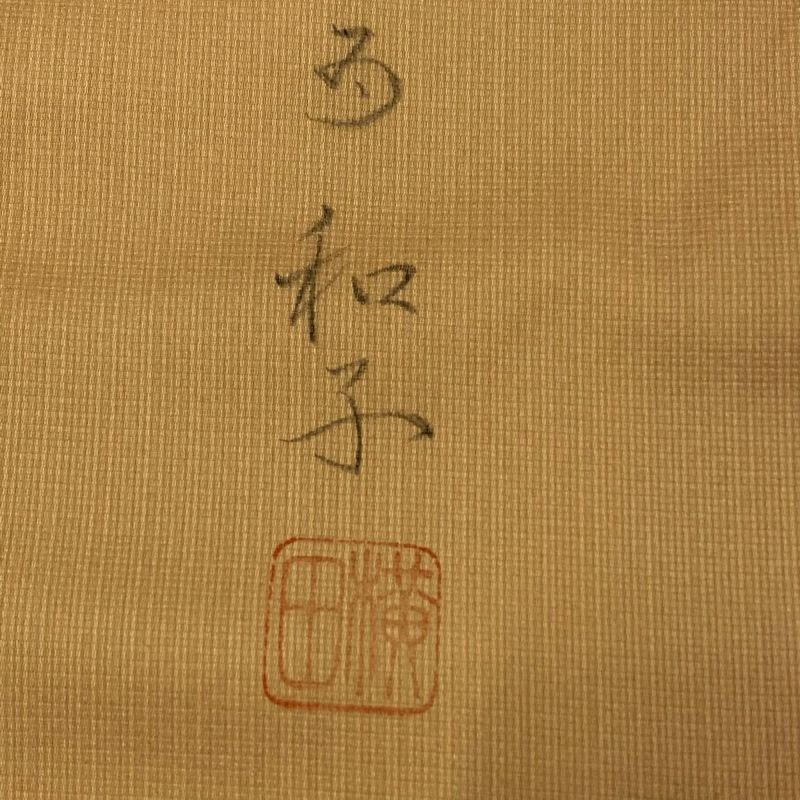 和子
横田